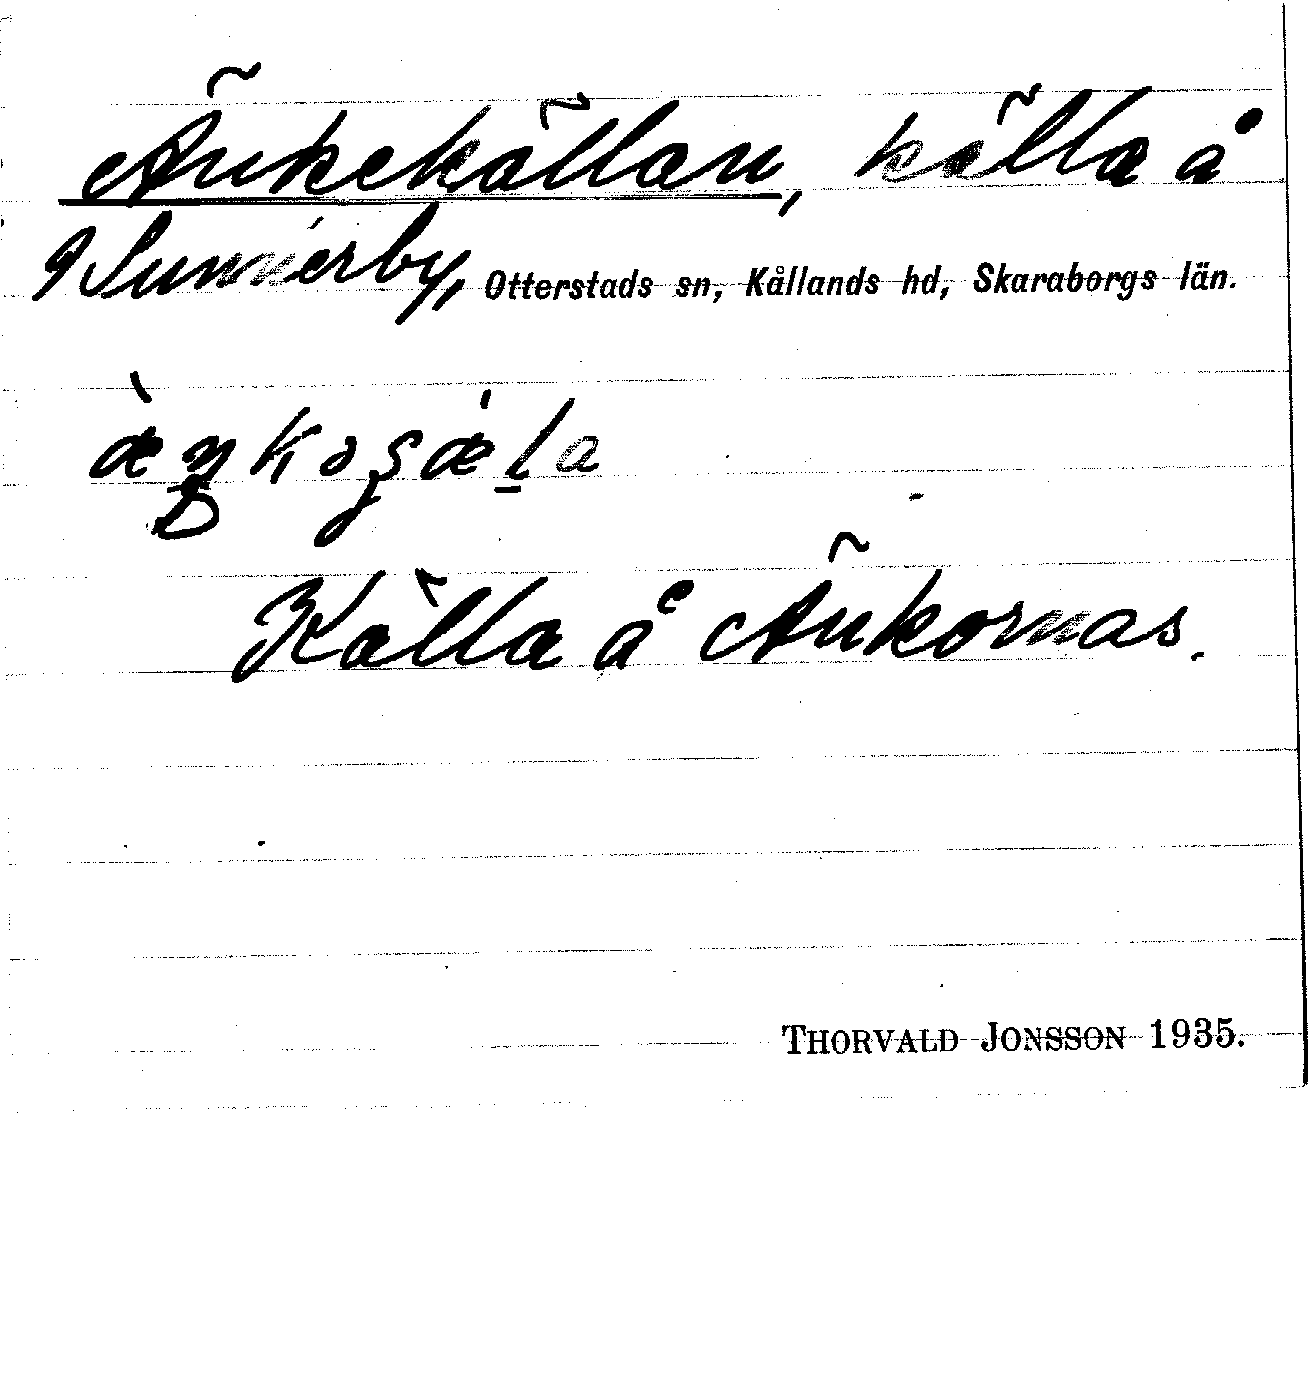 Änkekällan, källa å
Sunnerby, Otterstads sn, Kållands hd, Skaraborgs län.
Källa å Änkornas.
THORVALD JONSSON 1935.